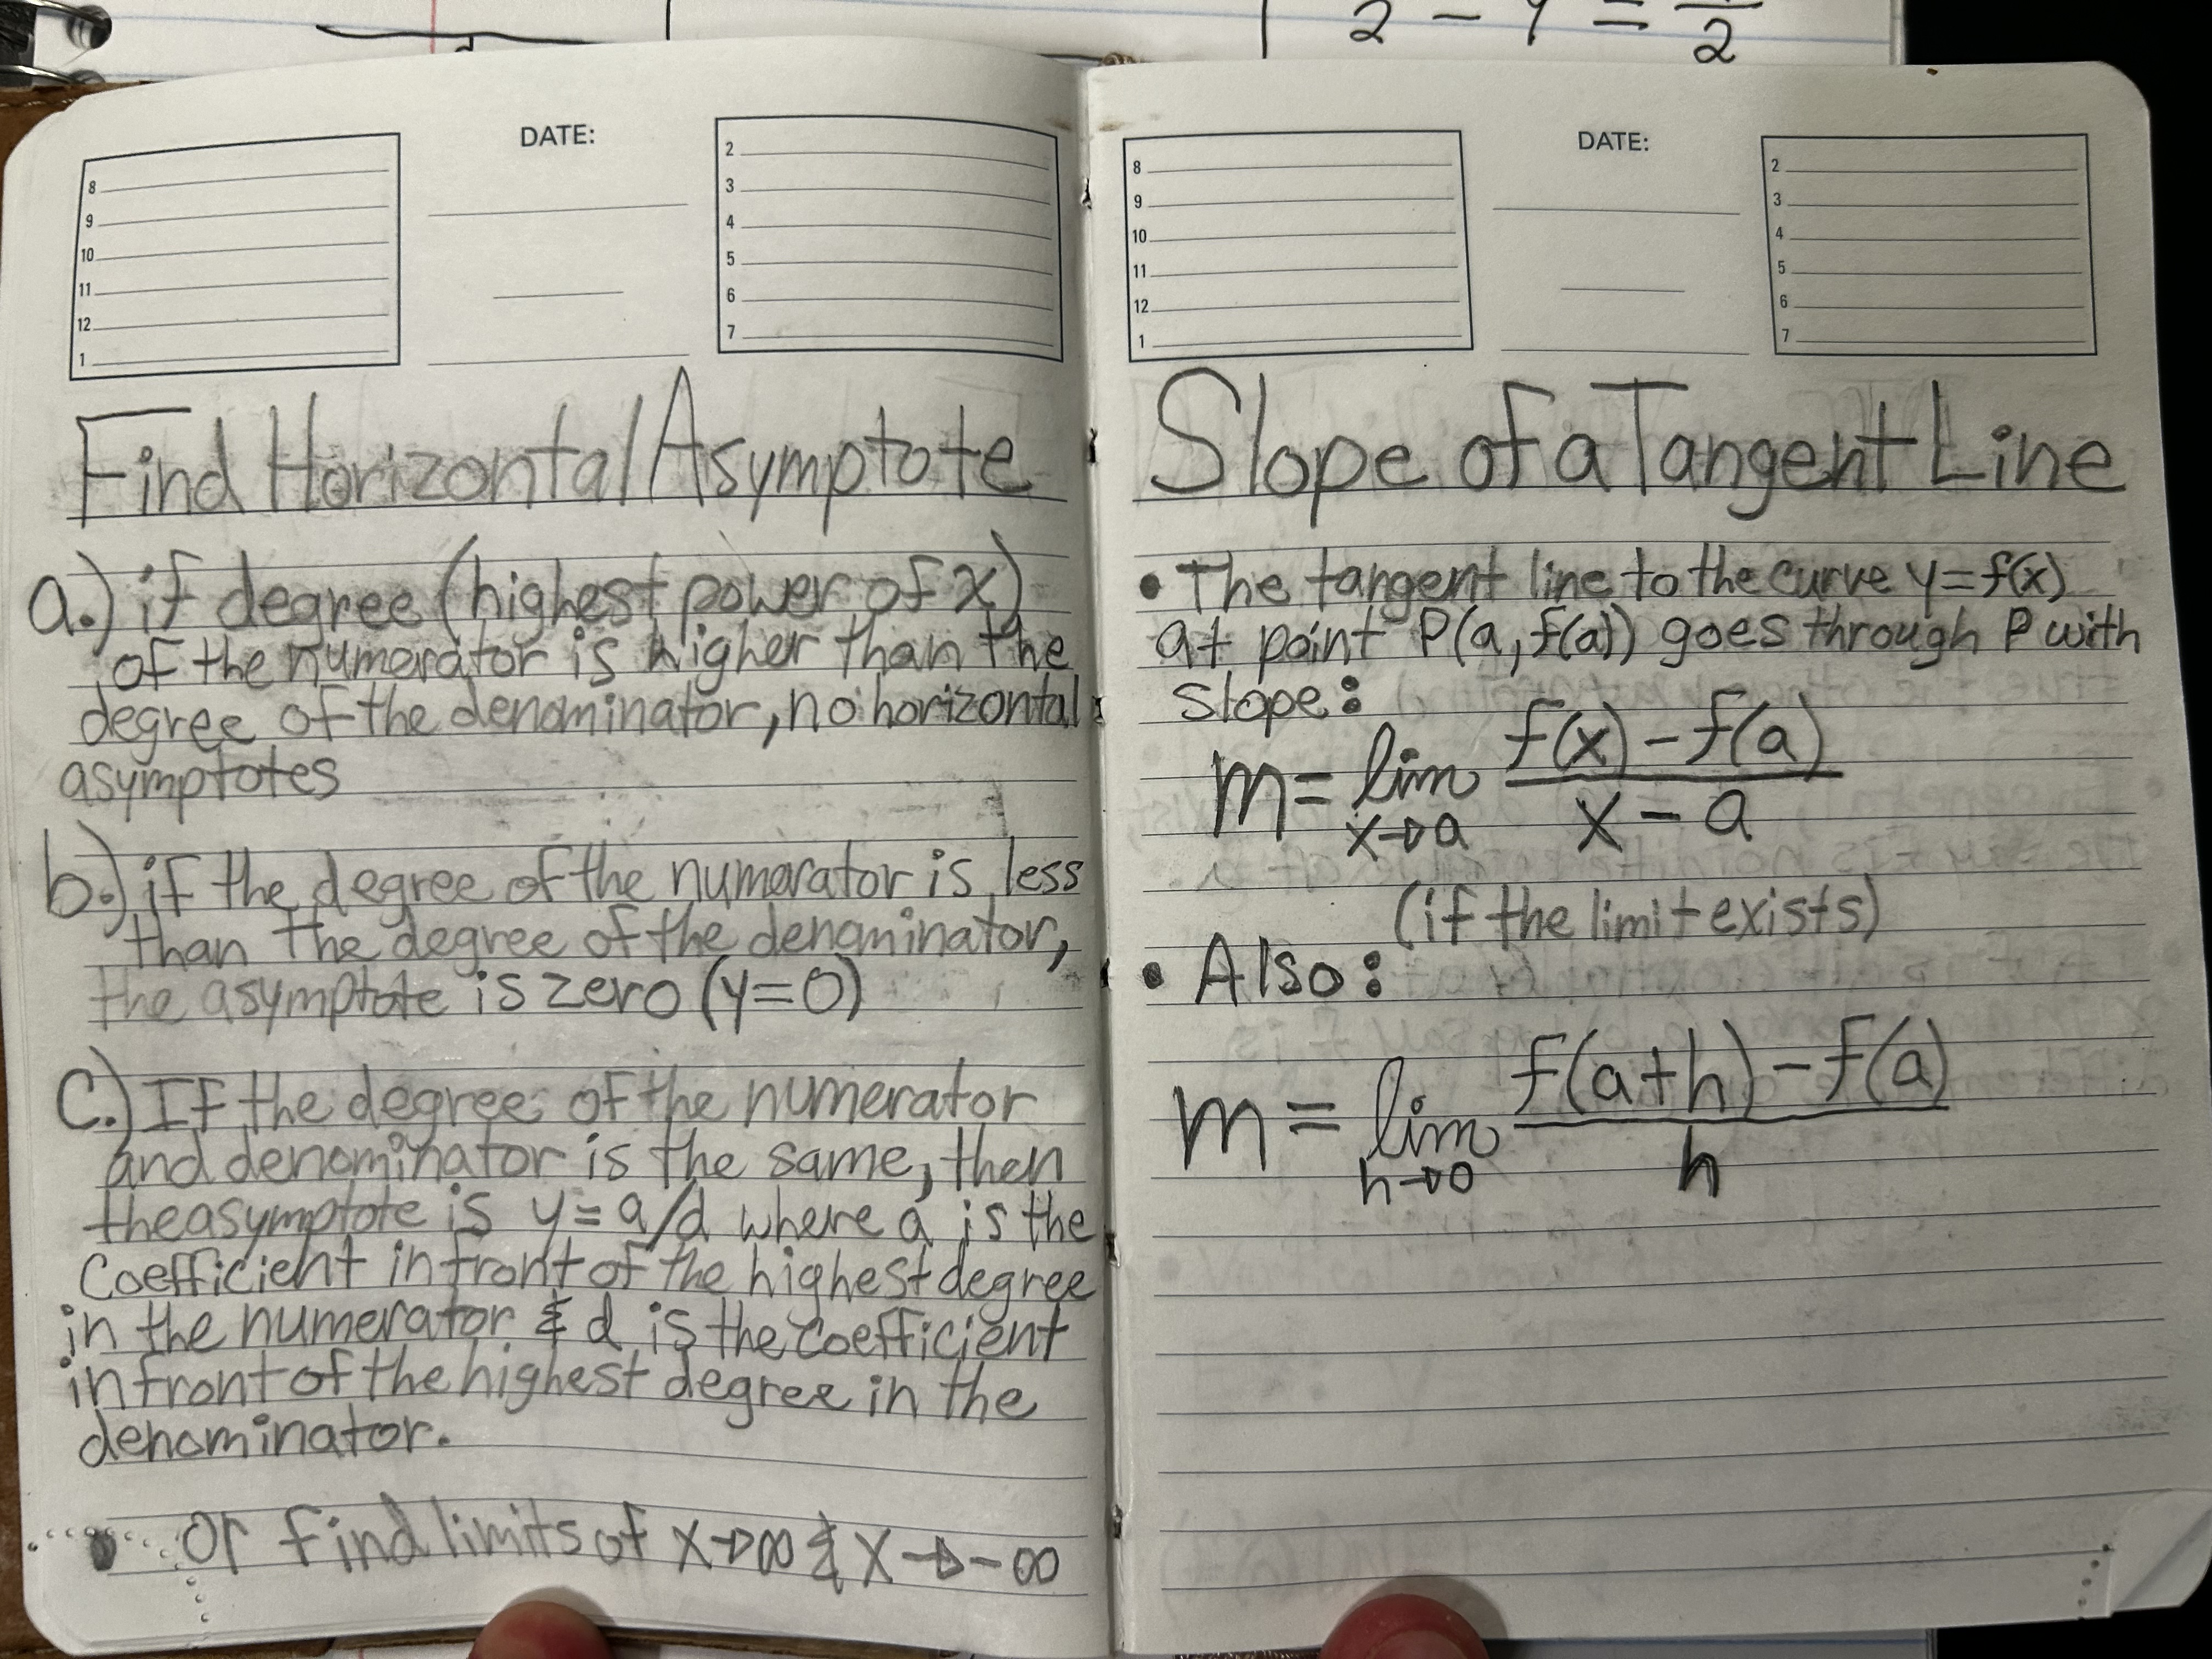 DATE:
8
9
10
11
12
1
2
3
4
5
6
7
Find Horizontal Asymptote
a.) if degree (highest power of x)
of the numerator is higher than the
degree of the denominator, no horizontal
asymptotes
b.) if the degree of the numerator is less
than the degree of the denominator,
the asymptote is zero (y=0)
C.) If the degree of the numerator
and denominator is the same, then
the asymptote is y=a/d where a is the
Coefficient in front of the highest degree
in the numerator & d is the coefficient
in front of the highest degree in the
denominator.
• Or find limits of x→∞ & x→-∞
DATE:
8
9
10
11
12
1
2
3
4
5
6
7
Slope of a Tangent Line
• The tangent line to the curve y=f(x)
at point P(a, f(a)) goes through P with
slope:
m = lim x→a f(x) - f(a) / x - a
(if the limit exists)
• Also:
m = lim h→0 f(a+h) - f(a) / h
2 - y = 2